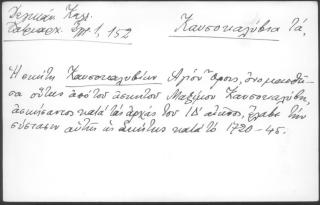 Δελτίον Καλ.
Πατριαρχ. Σημ. 1, 152
Καυσοκαλύβια Τά,
Ἡ σκήτη Καυσοκαλυβίων Ἁγίου Ὄρους, ὀνομασθεῖ-
σα οὕτως ἀπό τοῦ ἀσκητοῦ Μαξίμου Καυσοκαλύβη,
ἀσκήσαντος κατά τάς ἀρχάς τοῦ ΙΔ΄ αἰῶνος, ἔλαβε τήν
σύστασιν αὐτῆς ὡς σκήτης κατά τό 1720-45.